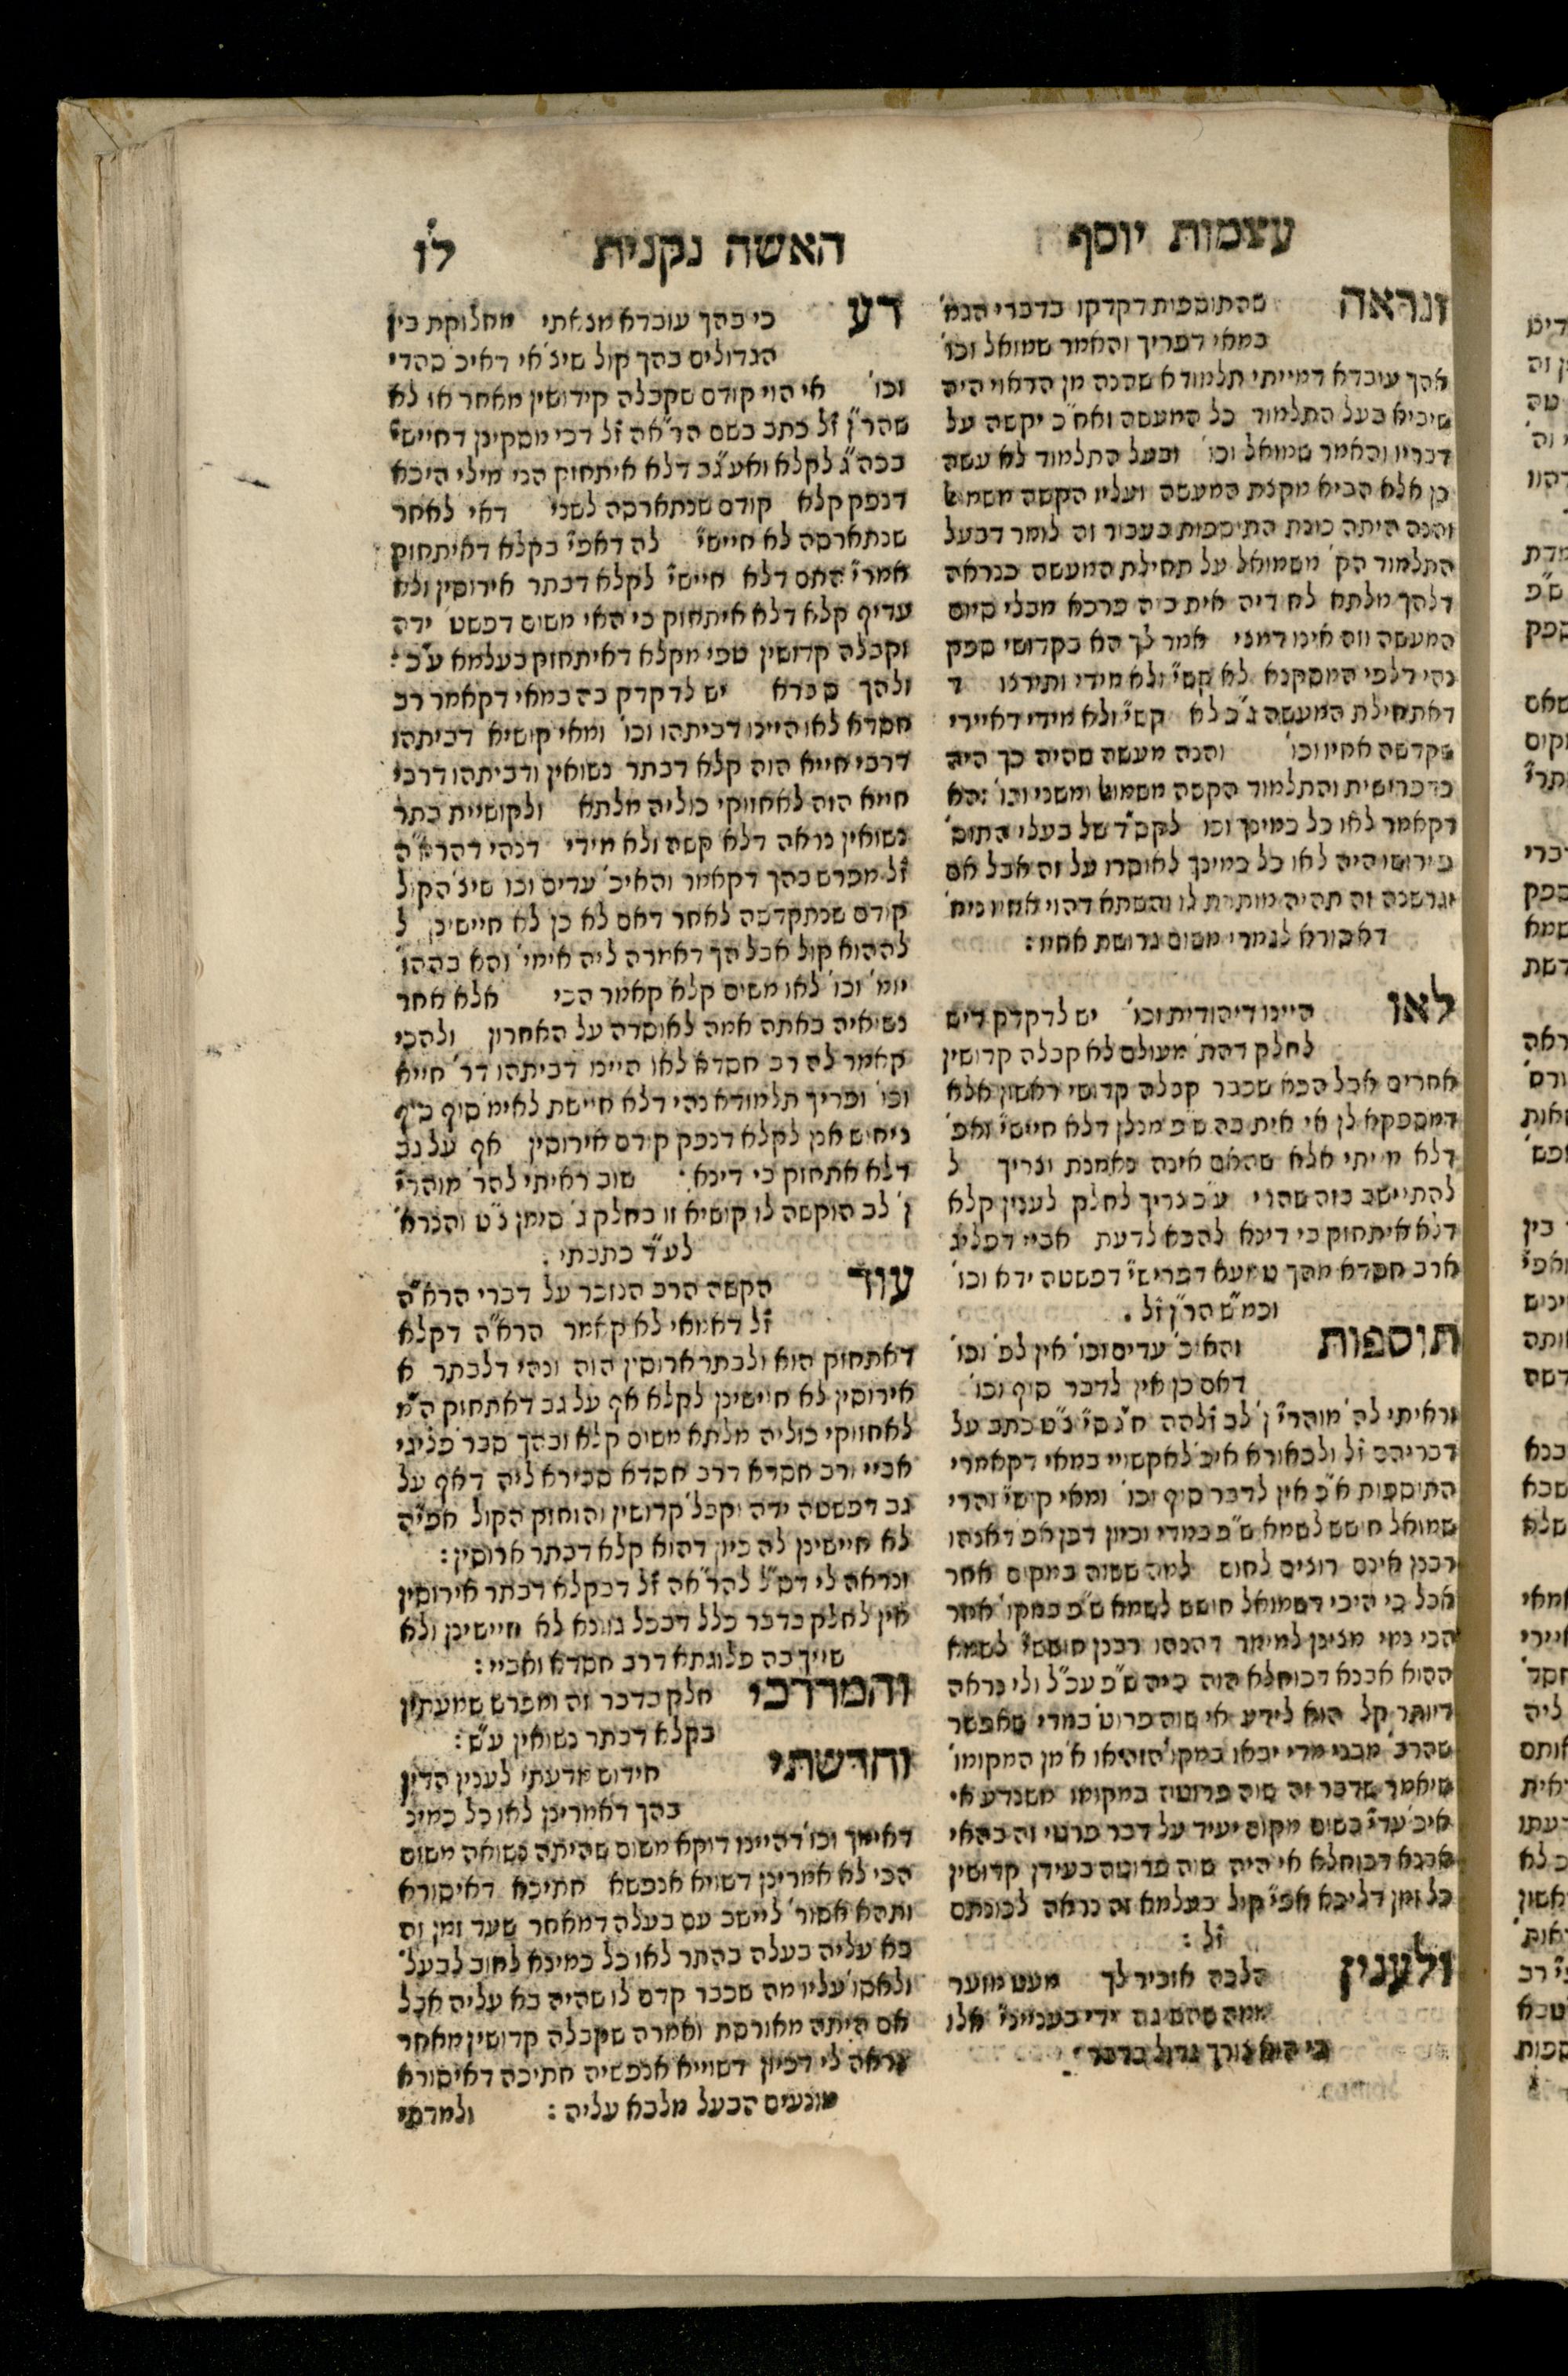 עצמות יוסף
האשה נקנית
לו
ונראה
שהתוספות דקדקו בדברי הגמ'
במאי דפריך והאמר שמואל וכו'
אהך עובדא דמייתי תלמודא שהנה מן הראוי היה
שיביא בעל התלמוד כל המעשה ואח"כ יקשה על
דבריו והאמר שמואל וכו' ובעל התלמוד לא עשה
כן אלא הביא מקצת המעשה ועליו הקשה
והנה היתה כונת התוספות בעבור זה לומר דבעל
התלמוד הק' משמואל על תחילת המעשה כנראה
דלהך מלתא לחדיה אית ביה פרכא מבלי סיום
המעשה וזה אינו דמני אמר לך הא בקדושי ספק
נהי דלפי המסקנא לא קשי' ולא מידי ותירצו ד
דאתחילת המעשה ג"כ לא קשי' ולא מידי דאיירי
שקדשה אחיו וכו' והנה מעשה שהיה כך היה
כדפרישית והתלמוד הקשה משמואל ומשני וכו' והא
דקאמר לאו כל כמינך וכו' לקס"ד של בעלי התוס'
פירושו היה לאו כל כמינך לאוסרו על זה אבל אם
יגרשנה זה תהיה מותרת לו והשתא דהוי אחיו ניח'
דאסורא לגמרי משום גרושת אחיו :
לאו
היינו דיהודית וכו' יש לדקדק דיש
לחלק דהת' מעולם לא קבלה קדושין
אחרים אבל הכא שכבר קבלה קדושי ראשון אלא
דמספקא לן אי אית בה ש"פ מנלן דלא חיישי' ואפ'
דלא מייתי אלא שהאם אינה נאמנת וצריך ל
להתיישב בזה שהרי ע"כ צריך לחלק לענין קלא
דלא איתחזק בי דינא להכא לדעת אביי דפליג
ארב חסדא מהך טעמא דפרישי' דפשטה ידא וכו'
וכמ"ש הר"ן ז"ל .
תוספות
והאיכ' עדים וכו' אין לפ' וכו'
דאם כן אין לדבר סוף וכו'
וראיתי לה' מוהר"י ן' לב ז"להה ח"ג סי' נ"ט כתב על
דבריהם ז"ל ולכאורא איכ' לאקשויי במאי דקאמרי
התוספות א"כ אין לדבר סוף וכו' ומאי קושי' והרי
שמואל חושש לשמא ש"פ במדי וכיון דכן אפ' דאנהו
רבנן אינם רוצים לחוש למה ששוה במקום אחר
אבל כי היכי דשמואל חושש לשמא ש"פ במקו' אחר
הכי נמי מצינן למימר דהנהו רבנן חוששי' לשמא
ההוא אבנא דכוחלא הוה ביה ש"פ עכ"ל ולי נראה
דיותר קל הוא לידע אי שוה פרוט' במדי שאפשר
שהרב' מבני מדי יבאו במקו' הזה או א' מן המקומו'
שיאמר שדבר זה שוה פרוטה במקומו משנדע אי
איכ' עדי' בשום מקום יעיד על דבר פרטי זה בהאי
אבנא דכוחלא אי היה שוה פרוטה בעידן קדושין
כל זמן דליכא אפי' קול בעלמא זה נראה לכונתם
ז"ל :
ולענין
הלכה אזכיר לך מעט מזער
ממה שהשיגה ידי בענייני' אלו
כי הוא צורך גדול בדבר :
דע
כי בהך עובדא מצאתי מחלוקת בין
הגדולים בהך קול שיצ' אי דאיכ' סהדי
וכו' אי הוי קודם שקבלה קידושין מאחר או לא
שהר"ן ז"ל כתב בשם הר"אה ז"ל דכי מסקינן דחיישי'
בכה"ג לקלא ואע"גב דלא איתחזק הני מילי היכא
דנפק קלא קודם שנתארסה לשני דאי לאחר
שנתארסה לא חיישי' לה דאפי' בקלא דאיתחזק
אמרי' התם דלא חיישי' לקלא דבתר אירוסין ולא
עדיף קלא דלא איתחזק כי האי משום דפשט' ידה
וקבלה קדושין טפי מקלא דאיתחזק בעלמא ע"כ :
ולהך סברא יש לדקדק בה במאי דקאמר רב
חסדא לאו היינו דביתהו וכו' ומאי קושיא דביתהו
דרבי חייא הוה קלא דבתר נשואין ודביתהו דרבי
חייא הוה לאחזוקי כוליה מלתא ולקושיית בתר
נשואין נראה דלא קשה ולא מידי דנהי דהרא"ה
ז"ל מפרש בהך דקאמר והאיכ' עדים וכו' שיצ' הקול
קודם שנתקדשה לאחר דאם לא כן לא חיישינן ל
לההוא קול אבל הך דאמרה ליה אימי' והא בההו'
יומ' וכו' לאו משום קלא קאמר הכי אלא אחר
נשואיה באתה אמה לאוסרה על האחרון ולהכי
קאמר לה רב חסדא לאו היינו דביתהו דר' חייא
וכו' ופריך תלמודא נהי דלא חיישת לאימ' סוף סוף
ניחוש אנן לקלא דנפק קודם אירוסין אף על גב
דלא אתחזק בי דינא : שוב ראיתי להר' מוהר"י
ן' לב הוקשה לו קושיא זו בחלק ג' סימן נ"ט והנרא'
לע"ד כתבתי :
עוד
הקשה הרב הנזכר על דברי הרא"ה
ז"ל דאמאי לא קאמר הרא"ה דקלא
דאתחזק הוא ולבתר ארוסין הוה ונהי דלבתר א
אירוסין לא חיישינן לקלא אף על גב דאתחזק ה"מ
לאחזוקי כוליה מלתא משום קלא ובהך סבר' פליגי
אביי ורב חסדא דרב חסדא סבירא ליה דאף על
גב דפשטה ידה וקבל' קדושין והוחזק הקול אפ"ה
לא חיישינן לה כיון דהוא קלא דבתר ארוסין :
ונראה לי דס"ל להר"אה ז"ל דבקלא דבתר אירוסין
אין לחלק בדבר כלל דבכל גוונא לא חיישינן ולא
שייך בה פלוגתא דרב חסדא ואביי :
והמרדכי
חלק בדבר זה ומפרש שמעתין
בקלא דבתר נשואין ע"ש :
וחדשתי
חידוש מדעתי לענין הדין
בהך דאמרינן לאו כל כמינ'
דאימך וכו' דהיינו דוקא משום שהיתה נשואה משום
הכי לא אמרינן דשויא אנפשא חתיכא דאיסורא
ותהא אסור' ליישב עם בעלה דמאחר שעד זמן זה
בא עליה בעלה בהתר לאו כל כמינא לחוב לבעל'
ולאסו' עליו מה שכבר קדם לו שהיה בא עליה אבל
אם היתה מאורסת ואמרה שקבלה קדושין מאחר
נראה לי דכיון דשוייא אנפשיה חתיכה דאיסורא
מונעים הבעל מלבא עליה :
ולמדתי